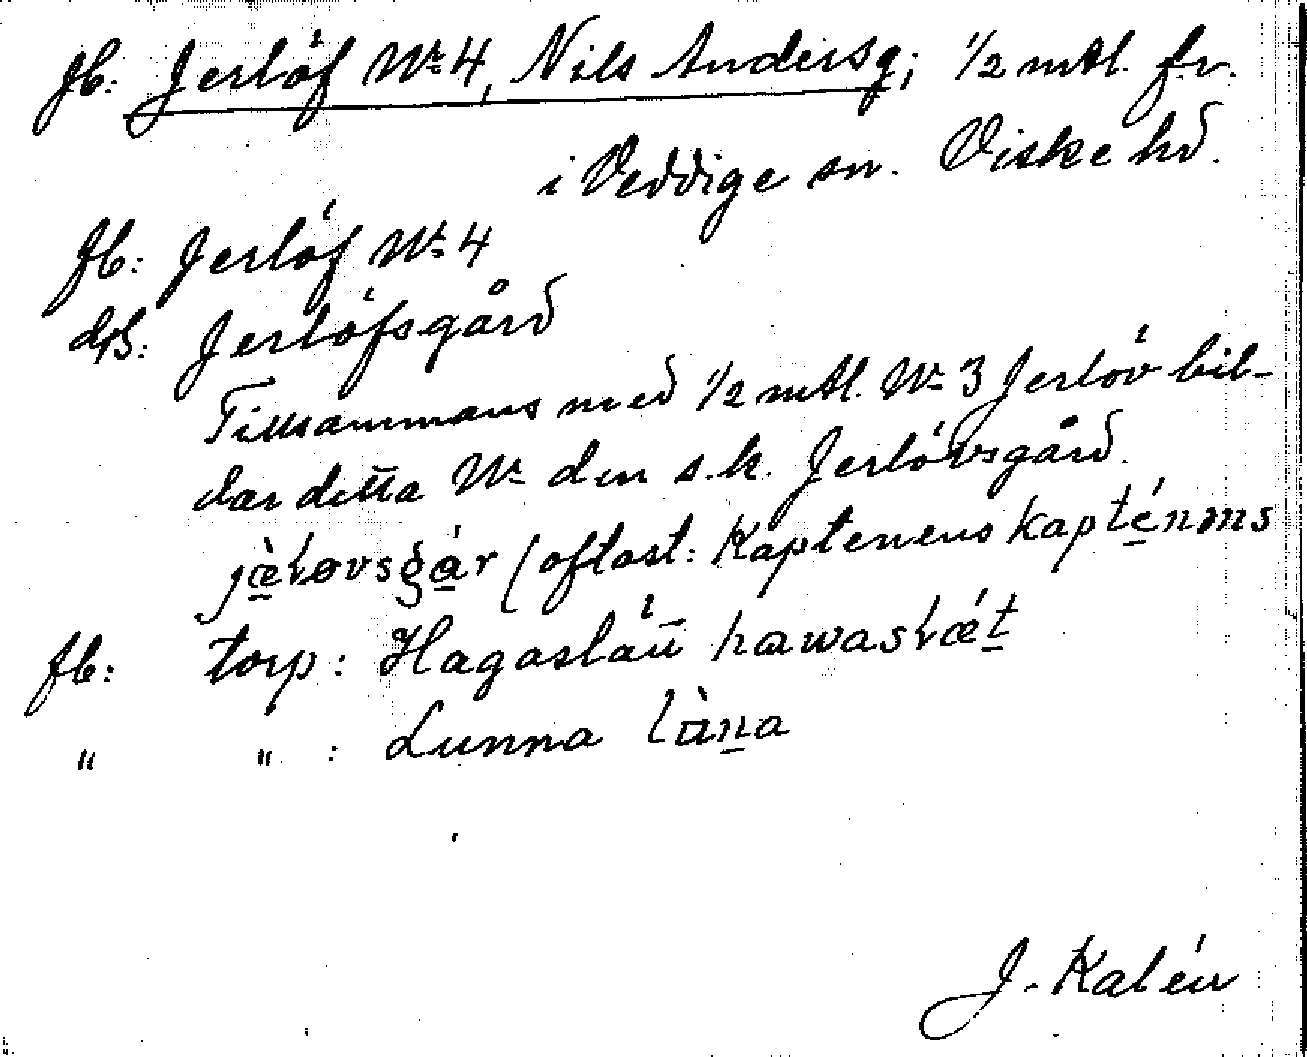 fb: Jerlöf Nr 4, Nils Andersg; 1/2 mtl. fr.
i Veddige sn. Viske hd.
fb: Jerlöf Nr 4
Jerlöfsgård
Tillsammans med 1/2 mtl. Nr 3 Jerlöv bil-
dar detta Nr den s.k. Jerlövsgård.
(oftast: Kaptenens kapténəns
fb: torp: Hagaslätt
" " : Lunna làna
J. Kalén